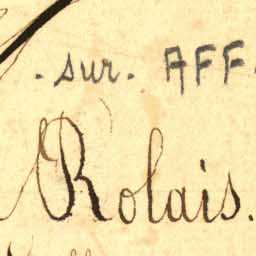 . sur. AFF.
Rolais.